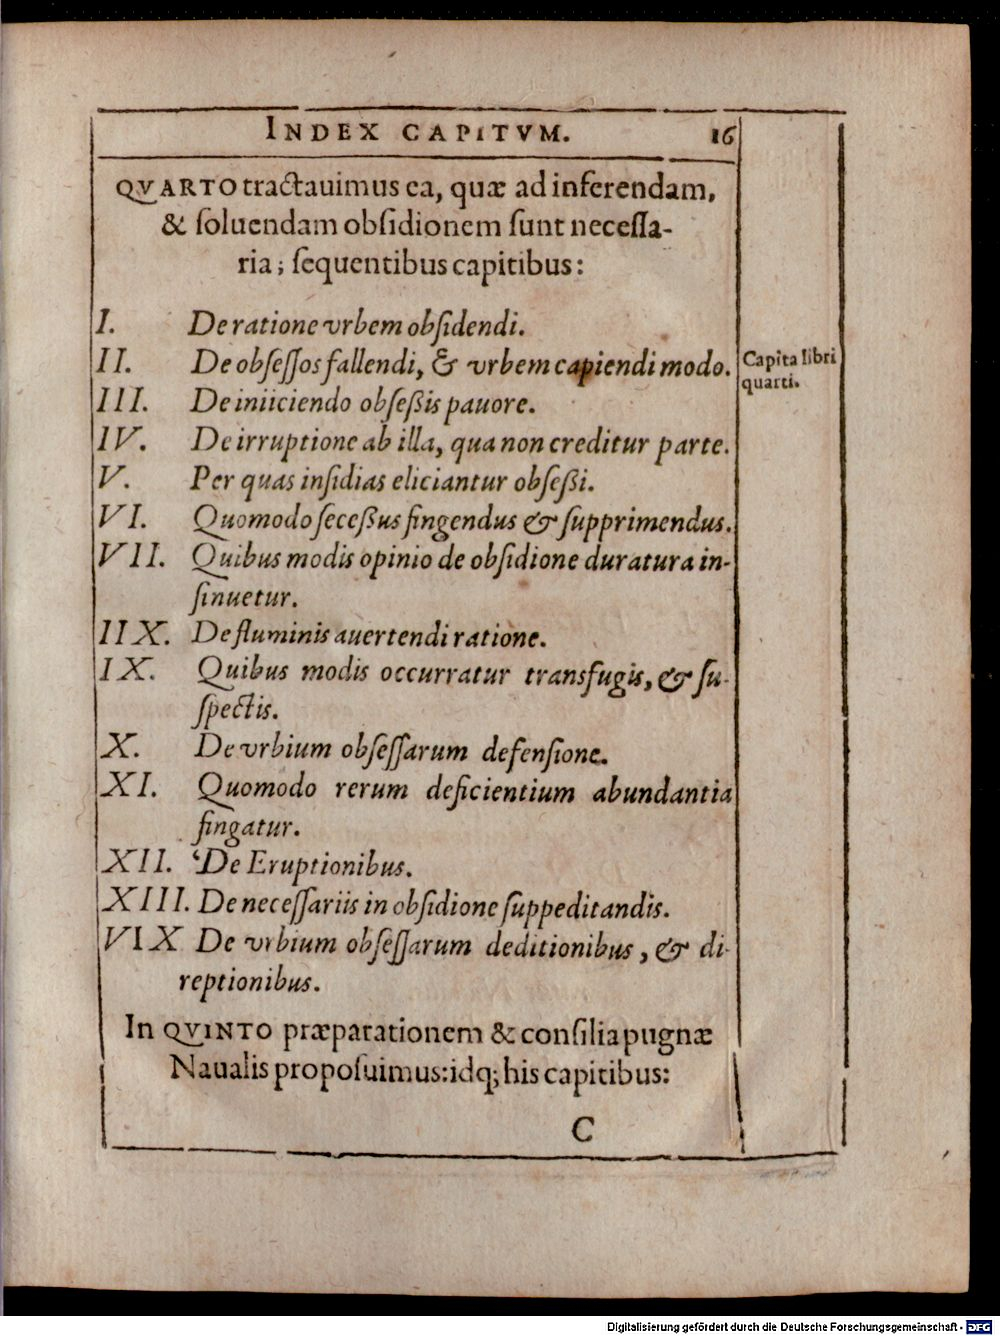 INDEX CAPITVM. 16
QVARTO tractauimus ea, quæ ad inferendam,
& ſoluendam obſidionem ſunt neceſſa-
ria; ſequentibus capitibus:
I. De ratione vrbem obſidendi.
II. De obſeſſos fallendi, & vrbem capiendi modo.
Capita libri
quarti.
III. De iniiciendo obſeßis pauore.
IV. De irruptione ab illa, qua non creditur parte.
V. Per quas inſidias eliciantur obſeßi.
VI. Quomodo ſeceßus fingendus & ſupprimendus.
VII. Quibus modis opinio de obſidione duratura in-
ſinuetur.
IIX. De fluminis auertendi ratione.
IX. Quibus modis occurratur transfugis, & ſu-
ſpectis.
X. De vrbium obſeſſarum defenſione.
XI. Quomodo rerum deficientium abundantia
fingatur.
XII. De Eruptionibus.
XIII. De neceſſariis in obſidione ſuppeditandis.
VIX De vrbium obſeſſarum deditionibus, & di-
reptionibus.
In QVINTO præparationem & conſilia pugnæ
Naualis propoſuimus: idq; his capitibus:
C
Digitalisierung gefördert durch die Deutsche Forschungsgemeinschaft - DFG